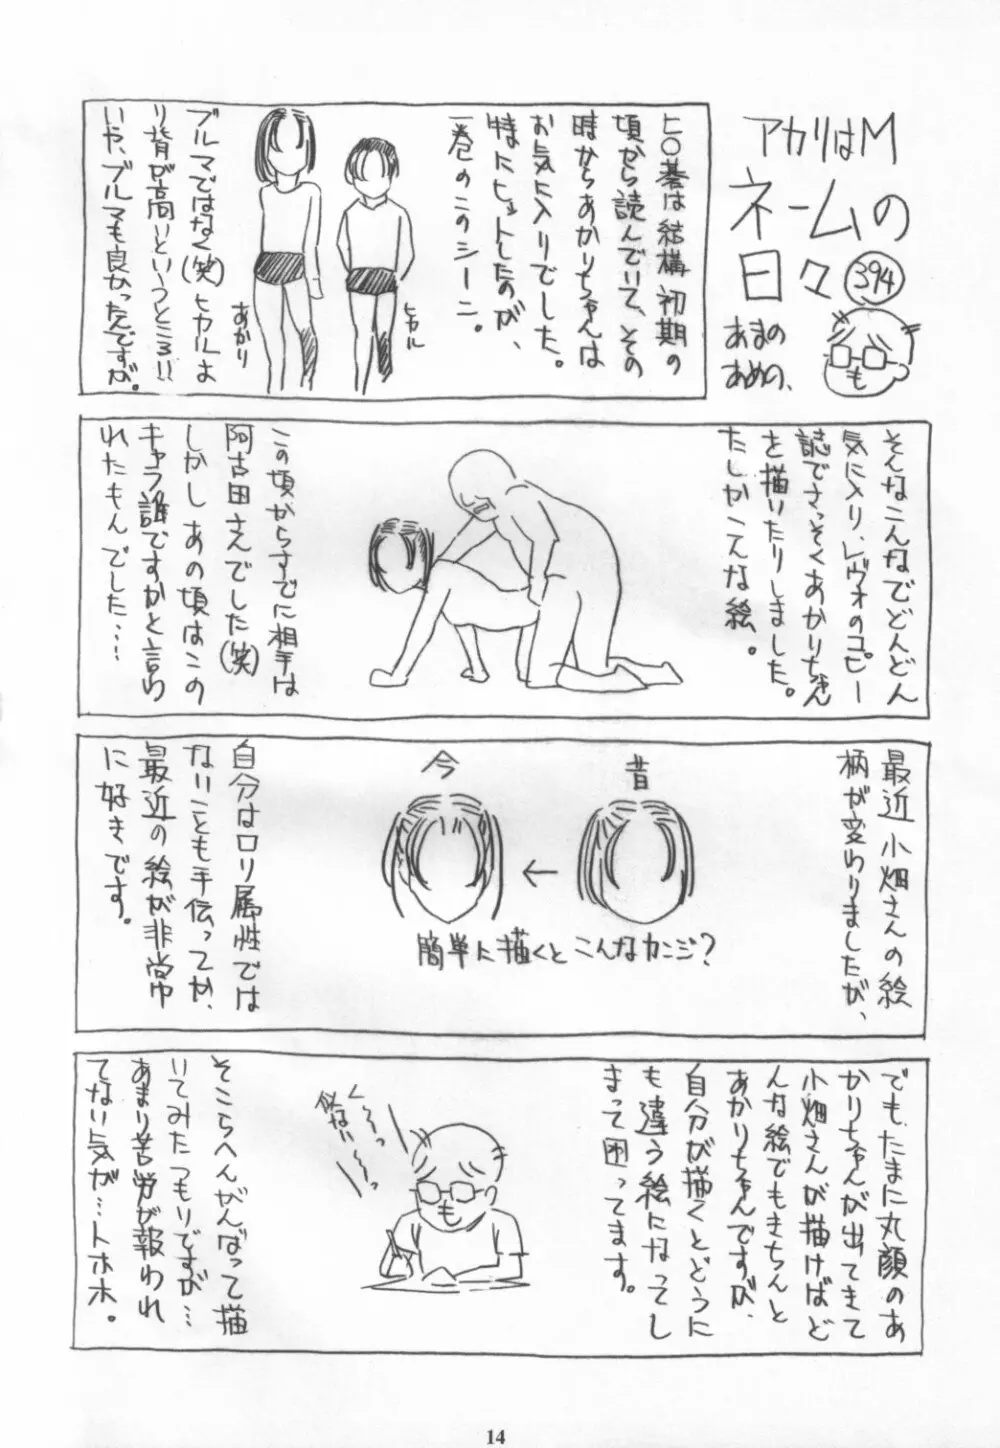 アカリはM
ネームの
日々 394
あまの
あめの、
ヒ〇碁は結構初期の
頃から読んでいて、その
時からあかりちゃんは
お気に入りでした。
特にヒットしたのが、
一巻のこのシーン。
ヒカル
あかり
ブルマではなく(笑)ヒカルよ
り背が高いというところ!!
いや、ブルマも良かったんですが。
そんなこんなでどんどん
気に入り、レヴォのコピー
誌でさっそくあかりちゃん
を描いたりしました。
たしかこんな絵。
この頃からすでに相手は
阿古田さんでした(笑)
しかしあの頃はこの
キャラ誰ですかと言わ
れたもんでした……
最近小畑さんの絵
柄が変わりましたが、
昔
←
今
簡単に描くとこんなカンジ?
自分はロリ属性では
ないことも手伝ってか、
最近の絵が非常
に好きです。
でも、たまに丸顔のあ
かりちゃんが出てきて
小畑さんが描けばど
んな絵でもきちんと
あかりちゃんですが、
自分が描くとどうに
も違う絵になってし
まって困ってます。
く〜〜っ
似ない〜〜っ
そこらへんがんばって描
いてみたつもりですが…
あまり苦労が報われ
てない気が…トホホ。
14